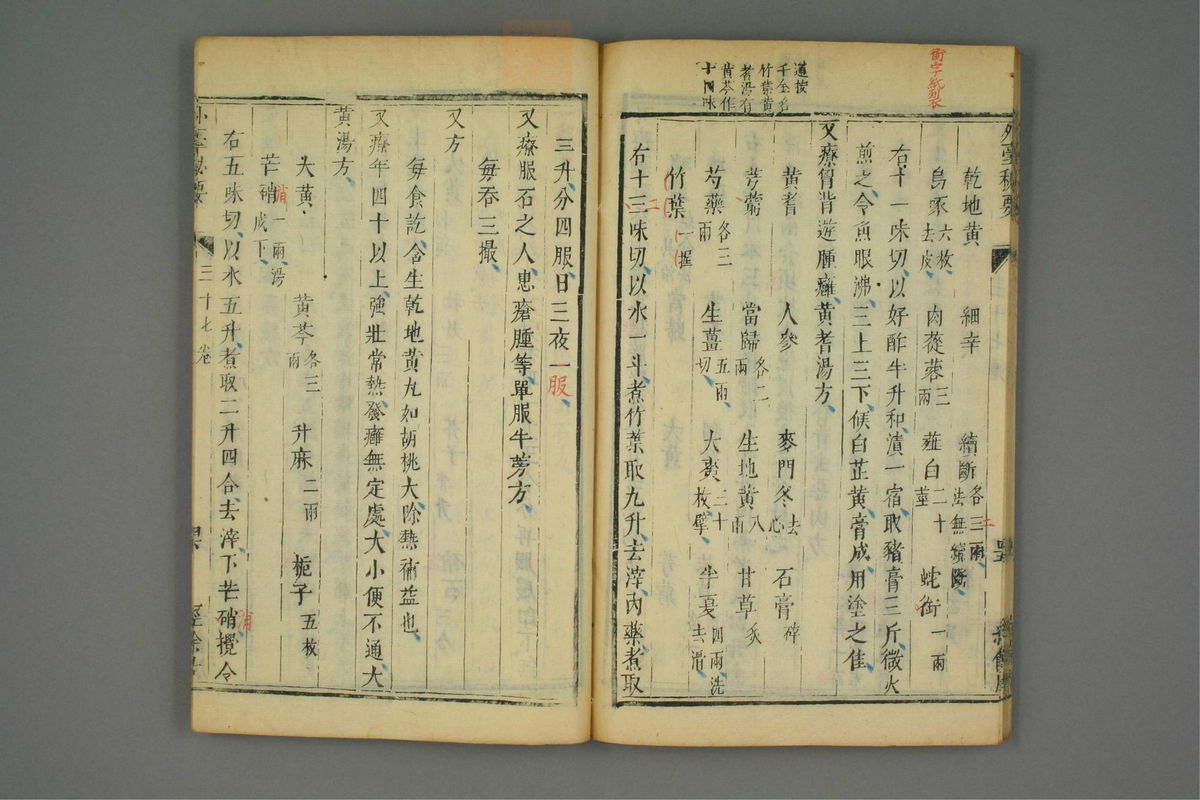 衘字紙裂
乾地黄 細辛 續斷各三兩 三 千金作法無續斷
烏豕六枚去皮 肉蓯蓉三兩 薤白二十莖 蛇銜一兩
右十一味切、以好酢半升和漬一宿、取豬膏三斤微火
煎之、令魚眼沸、三上三下、候白芷黄、膏成、用塗之佳、
又療胷背遊腫癰、黄耆湯方、
黄耆 人參 麥門冬去心 石膏碎
芎藭 當歸各二兩 生地黄八兩 甘草炙
芍藥各三兩 生薑五兩切、 大棗三十枚擘 半夏四兩洗去滑
竹葉一握
右十三味切、以水一斗二煮竹葉、取九升、去滓、內藥煮取
謹按
千金名
竹葉黄
耆湯有
黄芩作
十四味
三升、分四服、日三夜一服、
又療服石之人患瘡腫等、單服牛蒡方、
每吞三撮、
又方
每食訖、含生乾地黄丸如胡桃大、除熱術益也、
又療年四十以上、強壯常熱、發癰無定處、大小便不通、大
黄湯方、
大黄 黄芩各三兩 升麻二兩 梔子五枚
芒硝消一兩、湯成下、
右五味切、以水五升、煮取二升四合、去滓、下芒硝消攪令
三十七卷